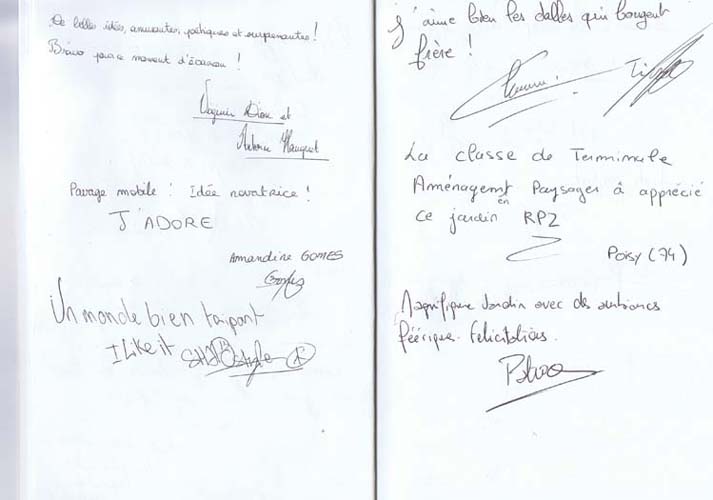 De belles idées, amusantes, poétiques et surprenantes !
Bravo pour ce moment d'évasion !
et
Pavage mobile ! Idée novatrice !
J'ADORE
Amandine GOMES
Un monde bien taipant
I Like it
J'aime bien les dalles qui bougent
frère !
La classe de Terminale
Aménagemt Paysager à apprécié
en
ce jardin RP2
Poisy (74)
Magnifique Jardin avec des ambiances
féérique. Félicitations.